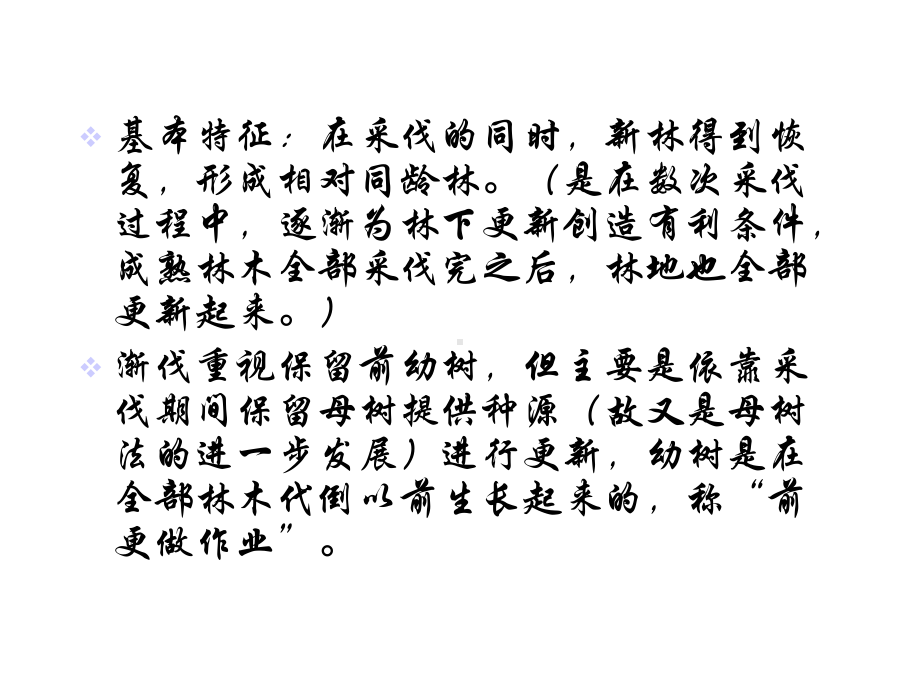 基本特征：在采伐的同时，新林得到恢
复，形成相对同龄林。（是在数次采伐
过程中，逐渐为林下更新创造有利条件，
成熟林木全部采伐完之后，林地也全部
更新起来。）
渐伐重视保留前幼树，但主要是依靠采
伐期间保留母树提供种源（故又是母树
法的进一步发展）进行更新，幼树是在
全部林木代倒以前生长起来的，称“前
更做作业”。